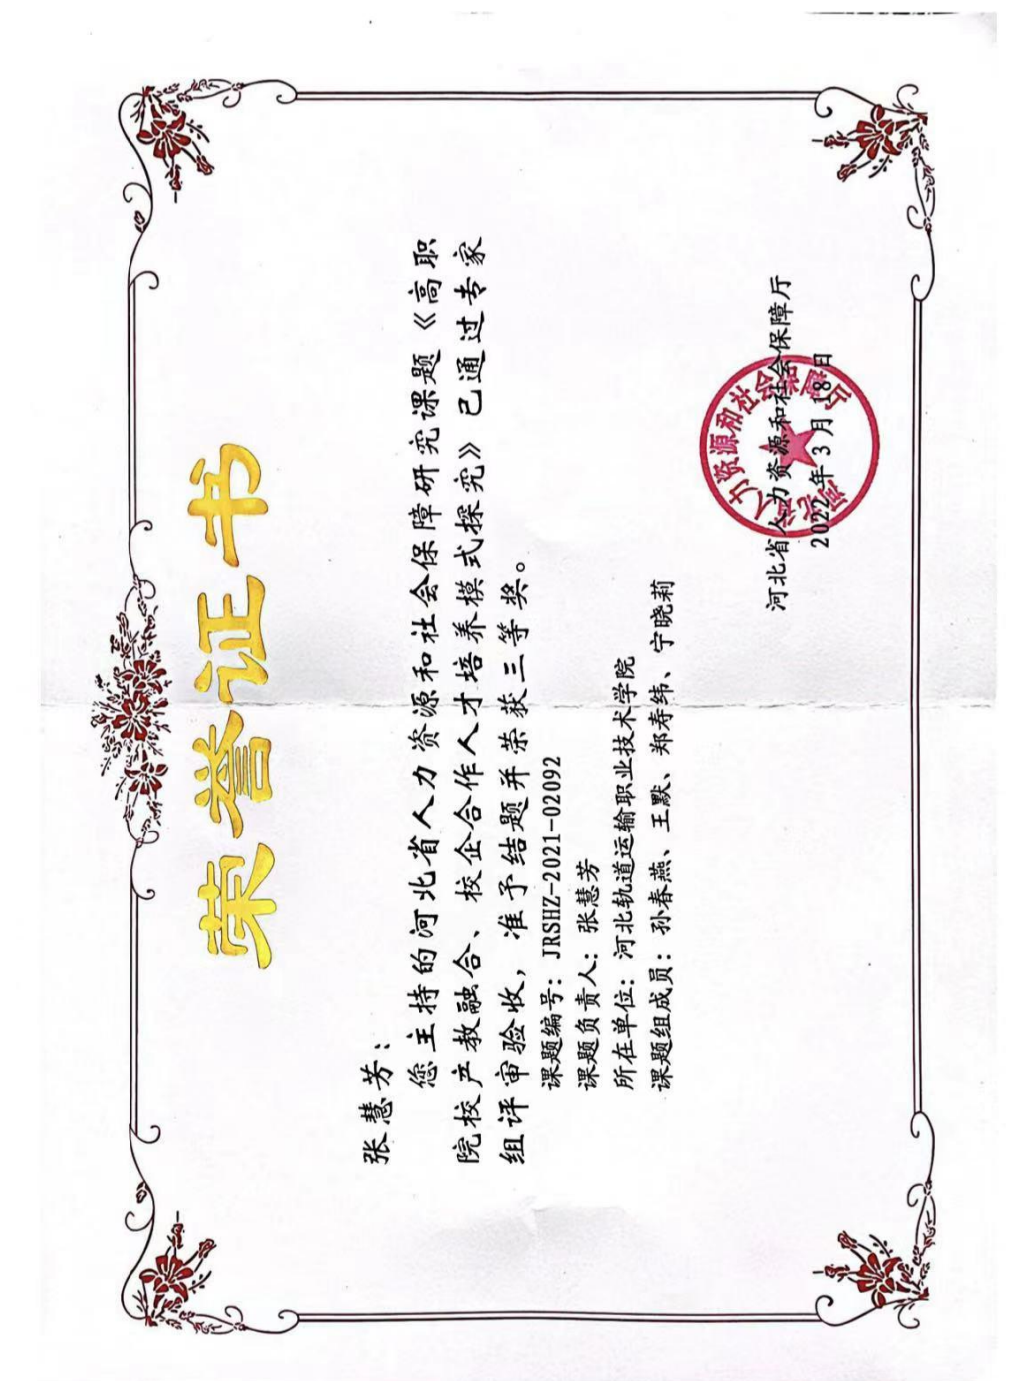 荣誉证书
张慧芳：
您主持的河北省人力资源和社会保障研究课题《高职
院校产教融合、校企合作人才培养模式探究》已通过专家
组评审验收，准予结题并荣获三等奖。
课题编号：JRSHZ-2021-02092
课题负责人：张慧芳
所在单位：河北轨道运输职业技术学院
课题组成员：孙春燕、王默、郑寿纬、宁晓莉
河北省人力资源和社会保障厅
2022年3月18日
河北省人力资源和社会保障厅